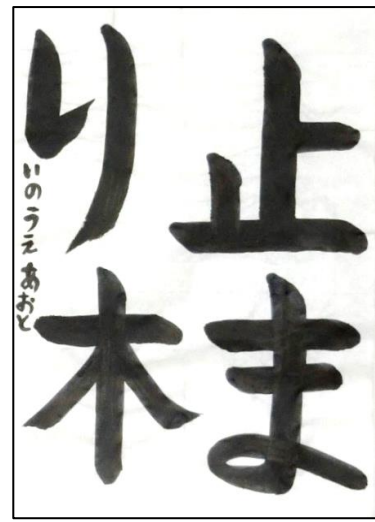 止ま
り木
いのうえ あおと